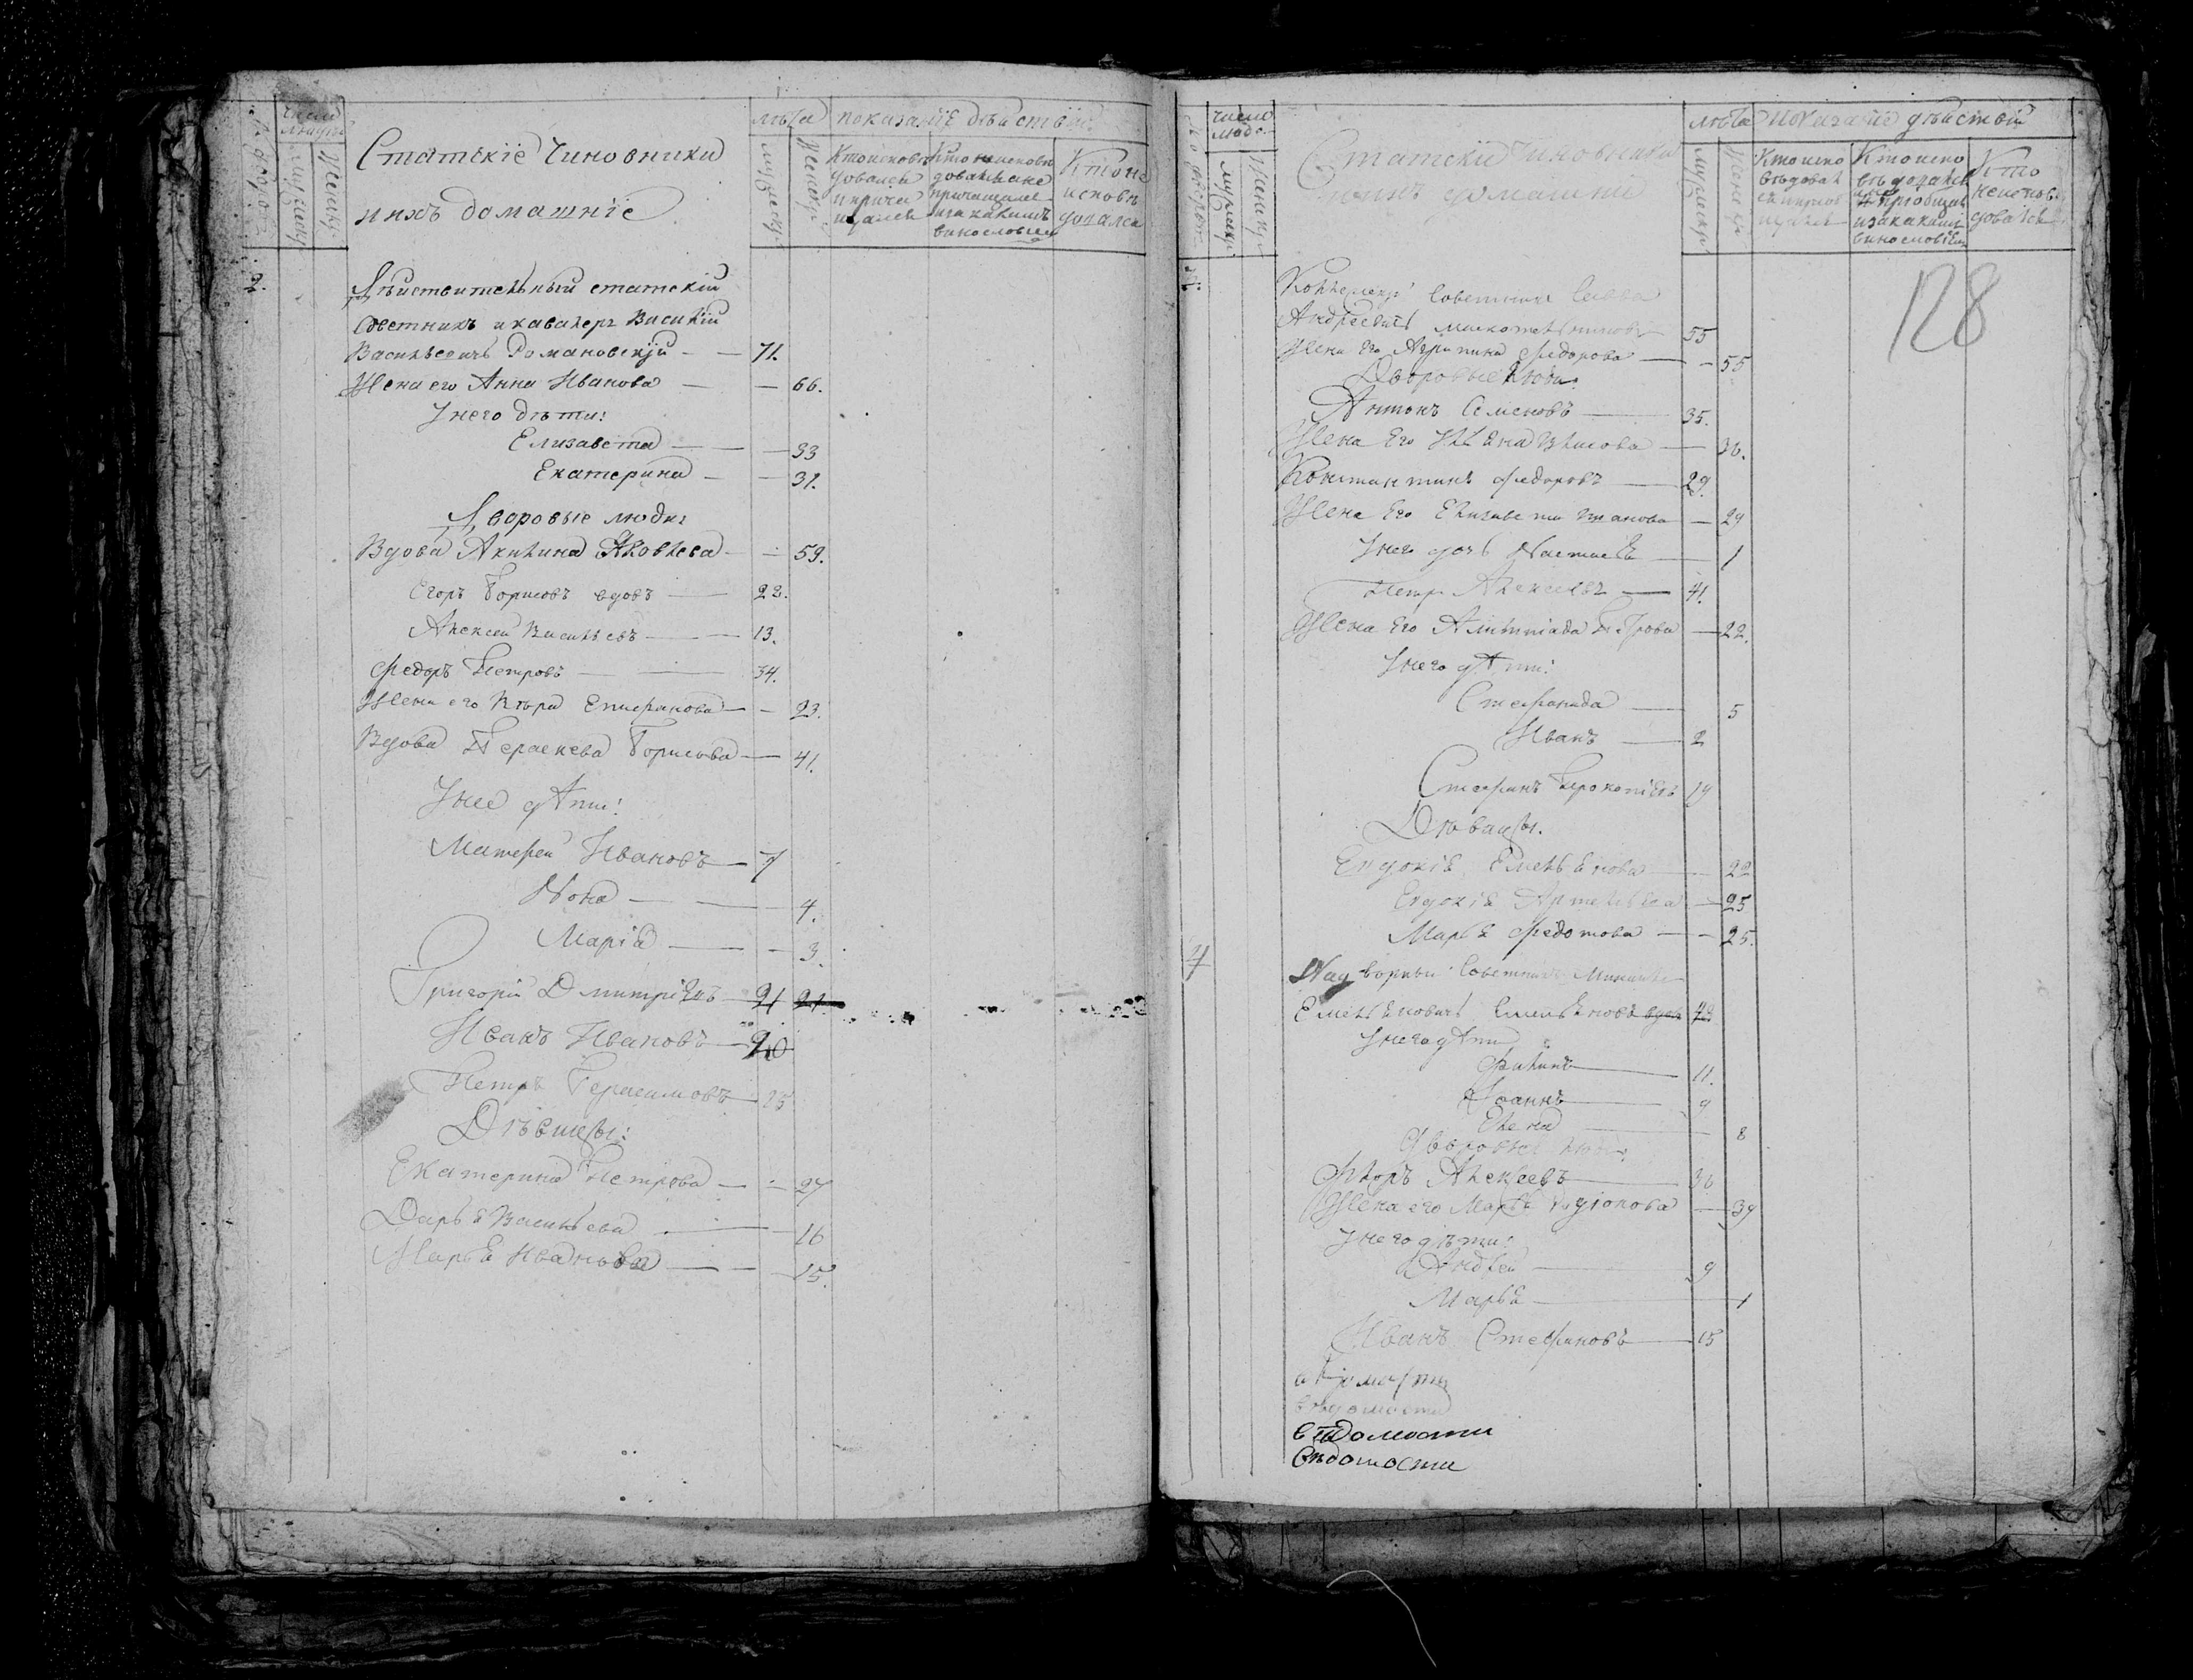 № дворовъ
число людей
мужеск:
женск:
Статскіе чиновники
и ихъ домашніе
лѣта
мужеск:
женск:
показаніе дѣйствій
Кто исповѣ
довался
и прича
щался
Кто исповѣ
довался а не
причащался
и за какимъ
винословіем
Кто не
исповѣ
довался
2.
Дѣйствительный статскій
Советникъ и кавалеръ Василій
Васильевичъ Романовскій — 71.
Жена его Анна Иванова — 66.
У него дѣти:
Елизавета — 33
Екатерина — 31.
Дворовые люди:
Вдова Акилина Яковлева — 59.
Егоръ Борисовъ вдовъ — 22.
Алексей Васильевъ — 13.
Федоръ Петровъ — 34.
Жена его Вѣра Епифанова — 23.
Вдова Параскева Борисова — 41.
У нее дѣти:
Матфей Ивановъ — 7
Нона — 4.
Марія — 3.
Григорій Дмитріевъ — 21 21
Иванъ Ивановъ — 20
Петръ Герасимовъ — 25
Дѣвицы:
Екатерина Петрова — 27
Дарья Васильева — 16
Марья Иванова — 15.
№ дворов
число людей
мужеск:
женск:
Статскіе чиновники
и ихъ домашніе
лѣта
мужеск
женск
показаніе дѣйствій
Кто испо
вѣдовал
ся и приоб
щался
Кто испо
вѣдовался
а не приобщался
и за какимъ
винословіем
Кто
не испове
довался
128
3.
Коллежскій Советникъ Савва
Андреевичъ — 55
Жена Его Агрипина Федорова — 55
Дворовые люди:
Антонъ Семеновъ — 35.
Жена Его — 30.
Константинъ Федоровъ — 29.
Жена Его Елизавета — 29
У него дочь Настасья — 1
Петръ Алексеевъ — 41.
Жена Его Олимпіада Петрова — 22.
У него дѣти:
Стефанида — 5
Иванъ — 2
Стефанъ Прокопіевъ 19
Дѣвицы.
Евдокія Емельянова — 22
Евдокія Артемьева — 25
Марья Федотова — 25.
4
Надворный Советникъ
Емельяновичъ Емельяновъ вдовъ 42
У него дѣти
Филипъ — 11.
Іоаннъ — 9
Елена — 8
Дворовые люди:
Флоръ Алексеевъ — 30
Жена его Марья Родіонова — 39
У него дѣти:
Андрей — 9
Марья — 1
Иванъ Стефановъ — 15
ведомости
ведомости
ведомости
ведомости